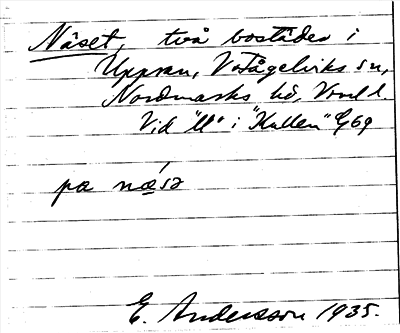 Näset, två bostäder i
Uppran, V. Fågelviks sn,
Nordmarks hd, Vrml.
Vid "ll" i "Kullen" G69
pa næ´sə
E. Andersson 1935.